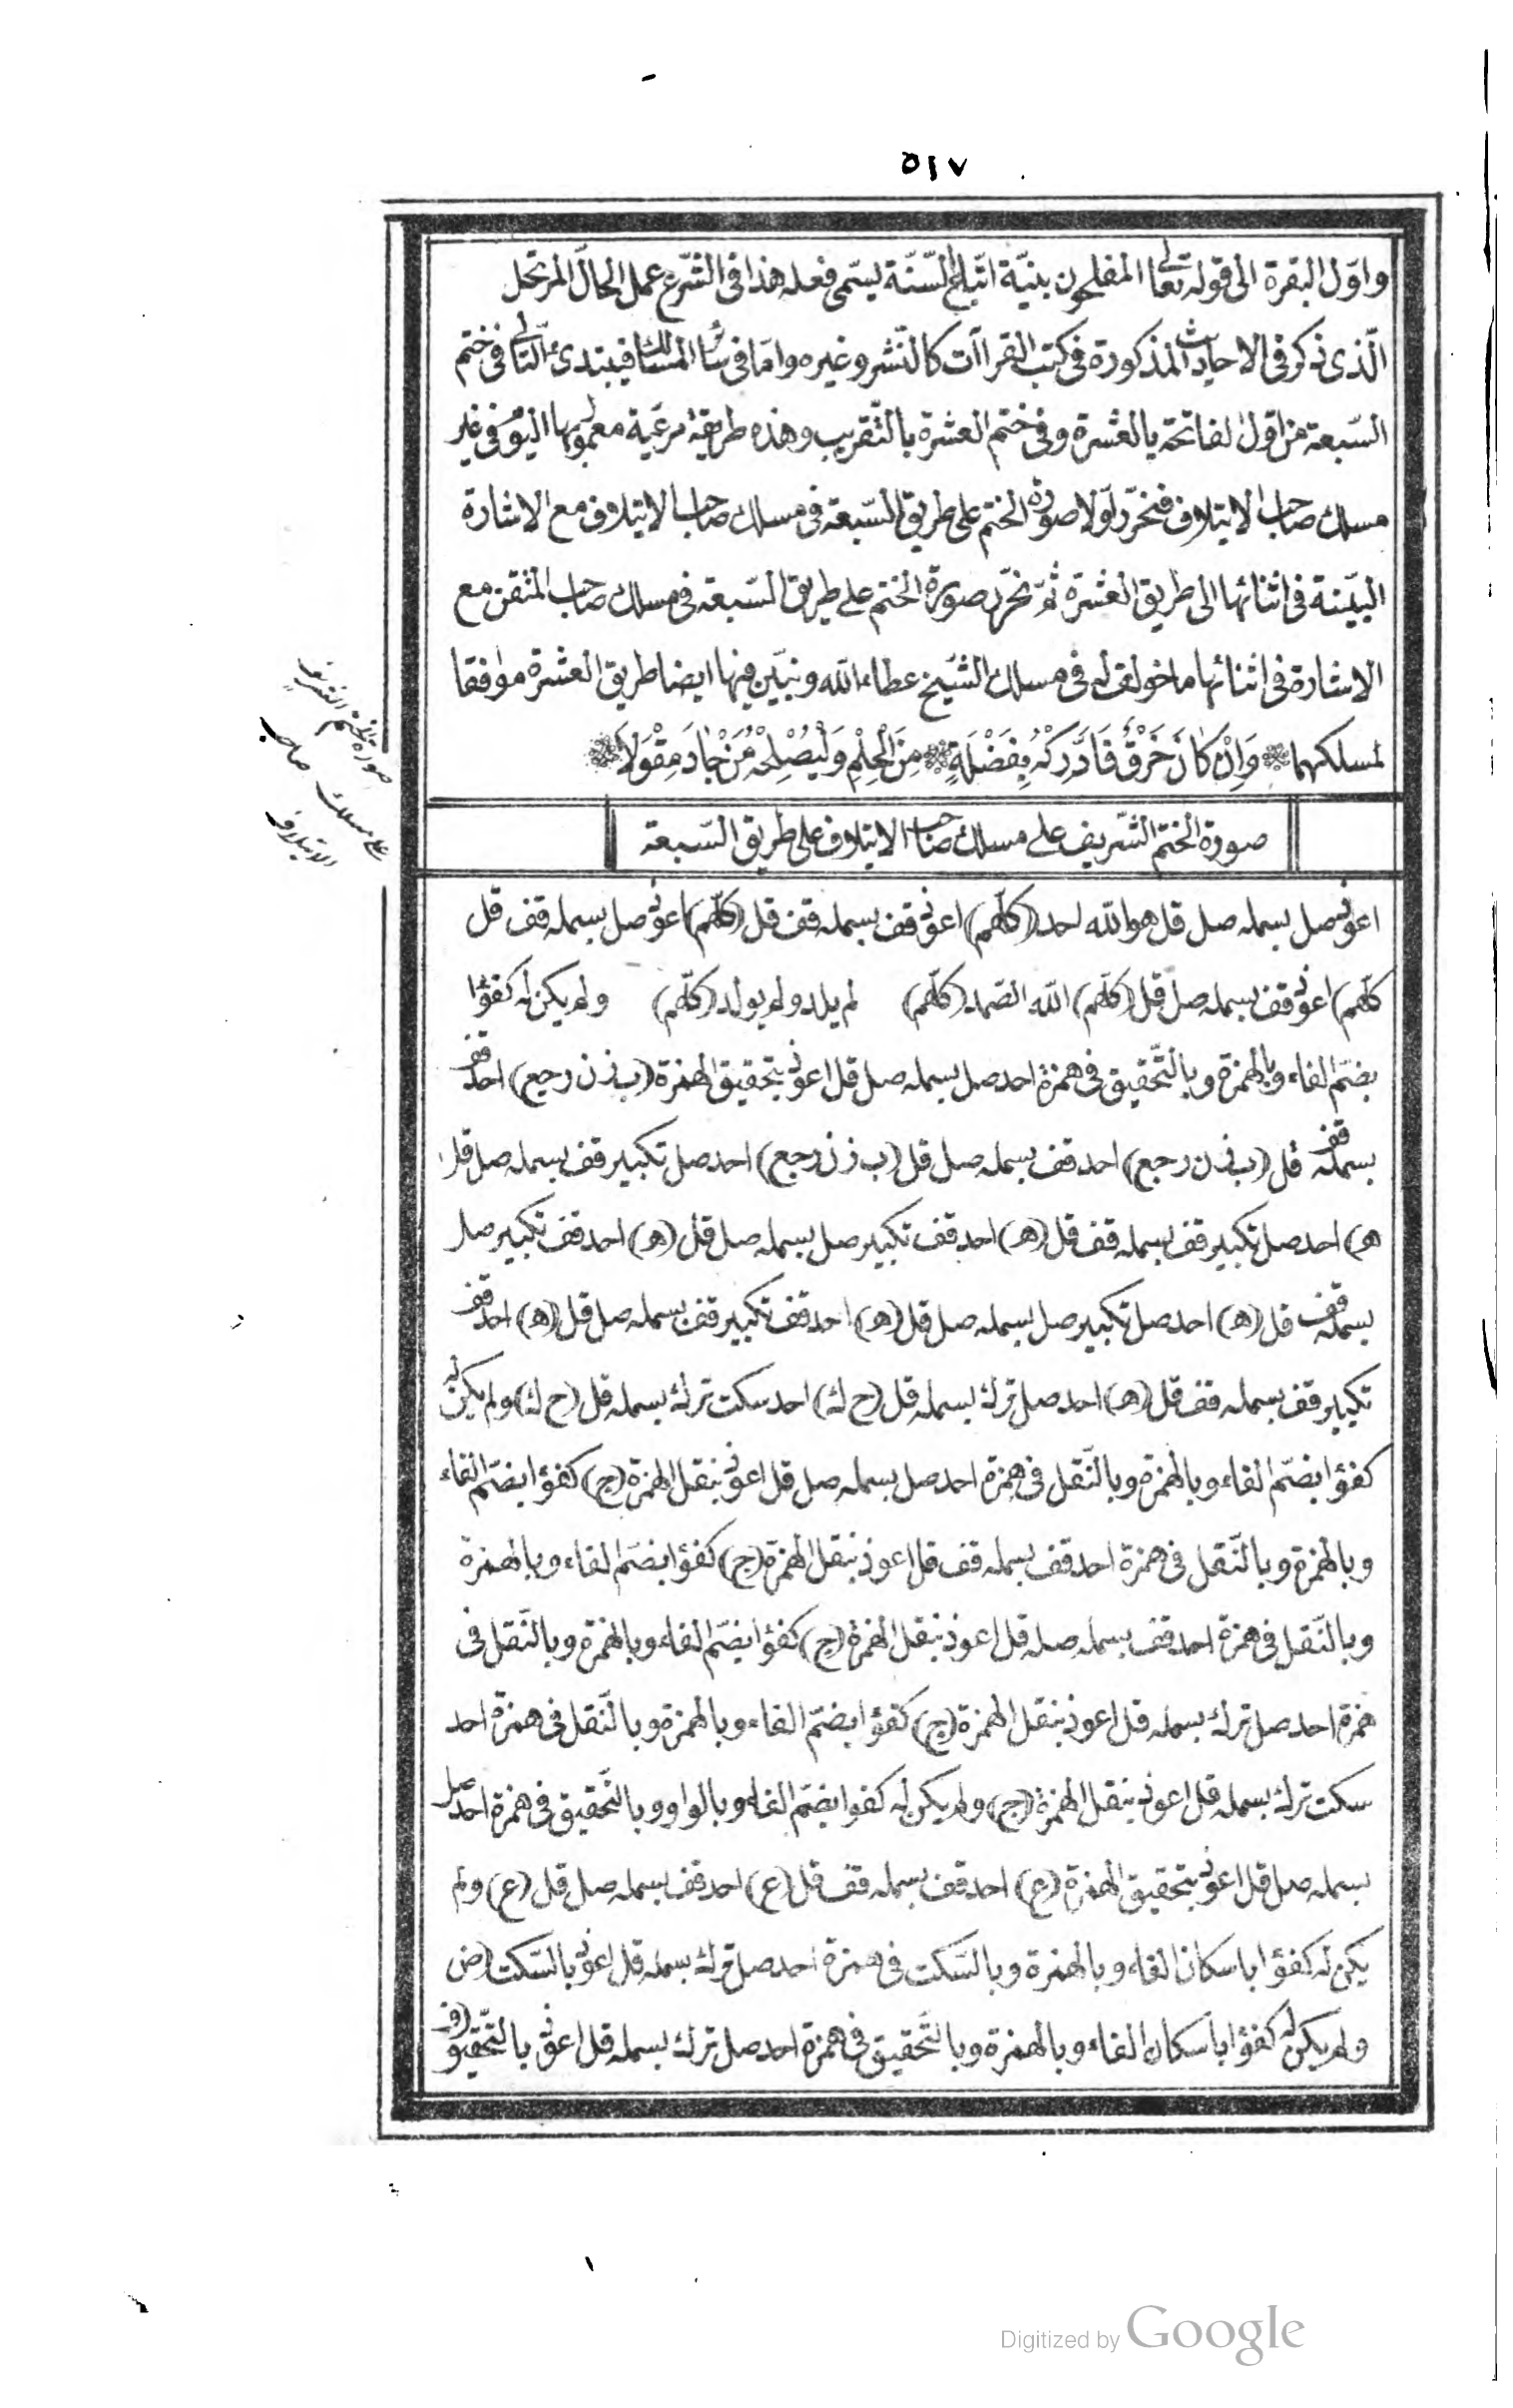 ٥١٧
واوّل البقرة الى قوله تعالى المفلحون بنيّة اتّباع السّنّة يسمّى فعله هذا فى الشّرع عمل الحالّ المرتحل
الّذى ذكر فى الاحاديث المذكورة فى كتب القراآت كالنّشر وغيره وامّا فى سائر المسالك فيبتدئ التالى فى ختم
السّبعة من اوّل الفاتحة يا لعشرة وفى ختم العشرة بالتّقريب وهذه طريقة مرعيّة معمول بها اليوم فى غير
مسلك صاحب الايتلاف فنحرّر اوّلا صورة الختم على طريق السّبعة فى مسلك صاحب الايتلاف مع الاشارة
البيّنة فى اثنائها الى طريق العشرة ثمّ نحرّر صورة الختم على طريق السّبعة فى مسلك صاحب المتقن مع
الاشارة فى اثنائها ما خولف له فى مسلك الشّيخ عطاء الله ونبيّن فيها ايضا طريق العشرة موافقا
لمسلكهما وَاِنْ كَانَ خَرْقٌ فَادَّرِكْهُ بِفَضْلَةٍ مِنَ الْحِلْمِ وَلْيُصْلِحْهُ مَنْ جَادَ مِقْوَلَا
صورة الختم الشّريف على مسلك صاحب الايتلاف على طريق السّبعة
صورة الختم الشريف
على مسلك صاحب
الايتلاف
اعوذ صل بسمله صل قل هو الله احد (كلّهم) اعوذ قف بسمله قف قل (كلّهم) اعوذ صل بسمله قف قل
كلّهم) اعوذ قف بسمله صل قل (كلّهم) الله الصّمد (كلّهم) لم يلد ولم يولد (كلّهم) ولم يكن له كفؤا
بضمّ الفاء وبالهمزة وبالتّحقيق فى همزة احد صل بسمله صل قل اعوذ بتحقيق الهمزة (ب ز ن رجع) احد قف
بسمله قف قل (ب ز ن رجع) احد قف بسمله صل قل (ب ز ن رجع) احد صل تكبير قف بسمله صل قل
ه) احد صل تكبير قف بسمله قف قل (ه) احد قف تكبير صل بسمله صل قل (ه) احد قف تكبير صل
بسمله قف قل (ه) احد صل تكبير صل بسمله صل قل (ه) احد قف تكبير قف بسمله صل قل (ه) احد قف
تكبير قف بسمله قف قل (ه) احد صل ترك بسمله قل (ح ك) احد سكت ترك بسمله قل (ح ك) ولم يكن له
كفؤا بضمّ الفاء وبالهمزة وبالنّقل فى همزة احد صل بسمله صل قل اعوذ بنقل الهمزة (ج) كفؤا بضمّ الفاء
وبالهمزة وبالنّقل فى همزة احد قف بسمله قف قل اعوذ بنقل الهمزة (ج) كفؤا بضمّ الفاء وبالهمزة
وبالنّقل فى همزة احد قف بسمله صله قل اعوذ بنقل الهمزة (ج) كفؤا بضمّ الفاء وبالهمزة وبالنّقل فى
همزة احد صل ترك بسمله قل اعوذ بنقل الهمزة (ج) كفؤا بضمّ الفاء وبالهمزة وبالنّقل فى همزة احد
سكت ترك بسمله قل اعوذ بنقل الهمزة (ج) ولم يكن له كفوا بضمّ الفاء وبالواو وبالتّحقيق فى همزة احد صل
بسمله صل قل اعوذ بتحقيق الهمزة (ع) احد قف بسمله قف قل (ع) احد قف بسمله صل قل (ع) ولم
يكن له كفؤا باسكان الفاء وبالهمزة وبالسّكت فى همزة احد صل ترك بسمله قل اعوذ بالسّكت (ض
ولم يكن له كفؤا باسكان الفاء وبالهمزة وبالتّحقيق فى همزة احد صل ترك بسمله قل اعوذ بالتّحقيق
Digitized by Google